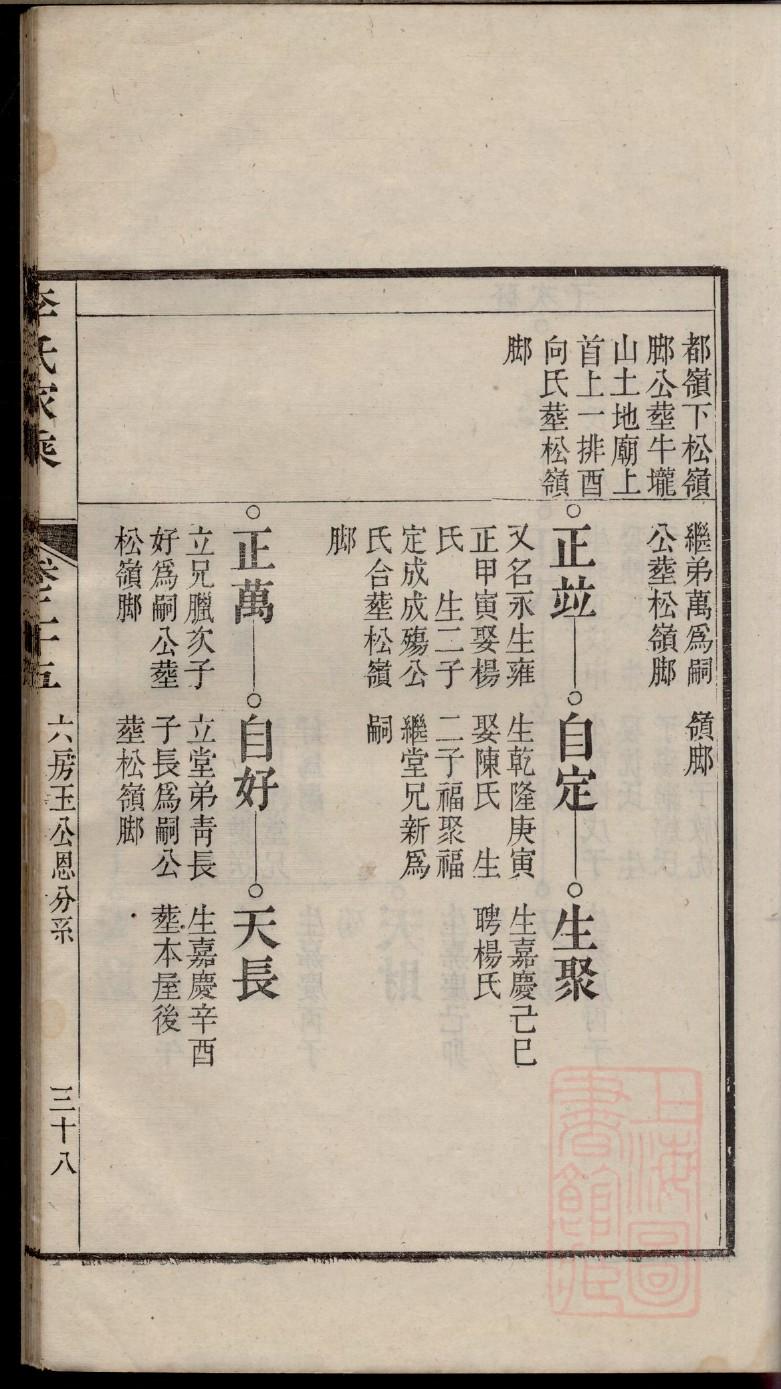 都嶺下松嶺
脚公塟牛壠
山土地廟上
首上一排酉
向氏塟松嶺
脚
繼弟萬爲嗣
公塟松嶺脚
嶺脚
正竝
又名永生雍
正甲寅娶楊
氏　生二子
定成成殤公
氏合塟松嶺
脚
自定
生乾隆庚寅
娶陳氏　生
二子福聚福
繼堂兄新爲
嗣
生聚
生嘉慶己巳
聘楊氏
正萬
立兄臘次子
好爲嗣公塟
松嶺脚
自好
立堂弟靑長
子長爲嗣公
塟松嶺脚
天長
生嘉慶辛酉
塟本屋後
李氏家乘
卷二十五
六房玉公恩分系
三十八
上海圖
書館藏